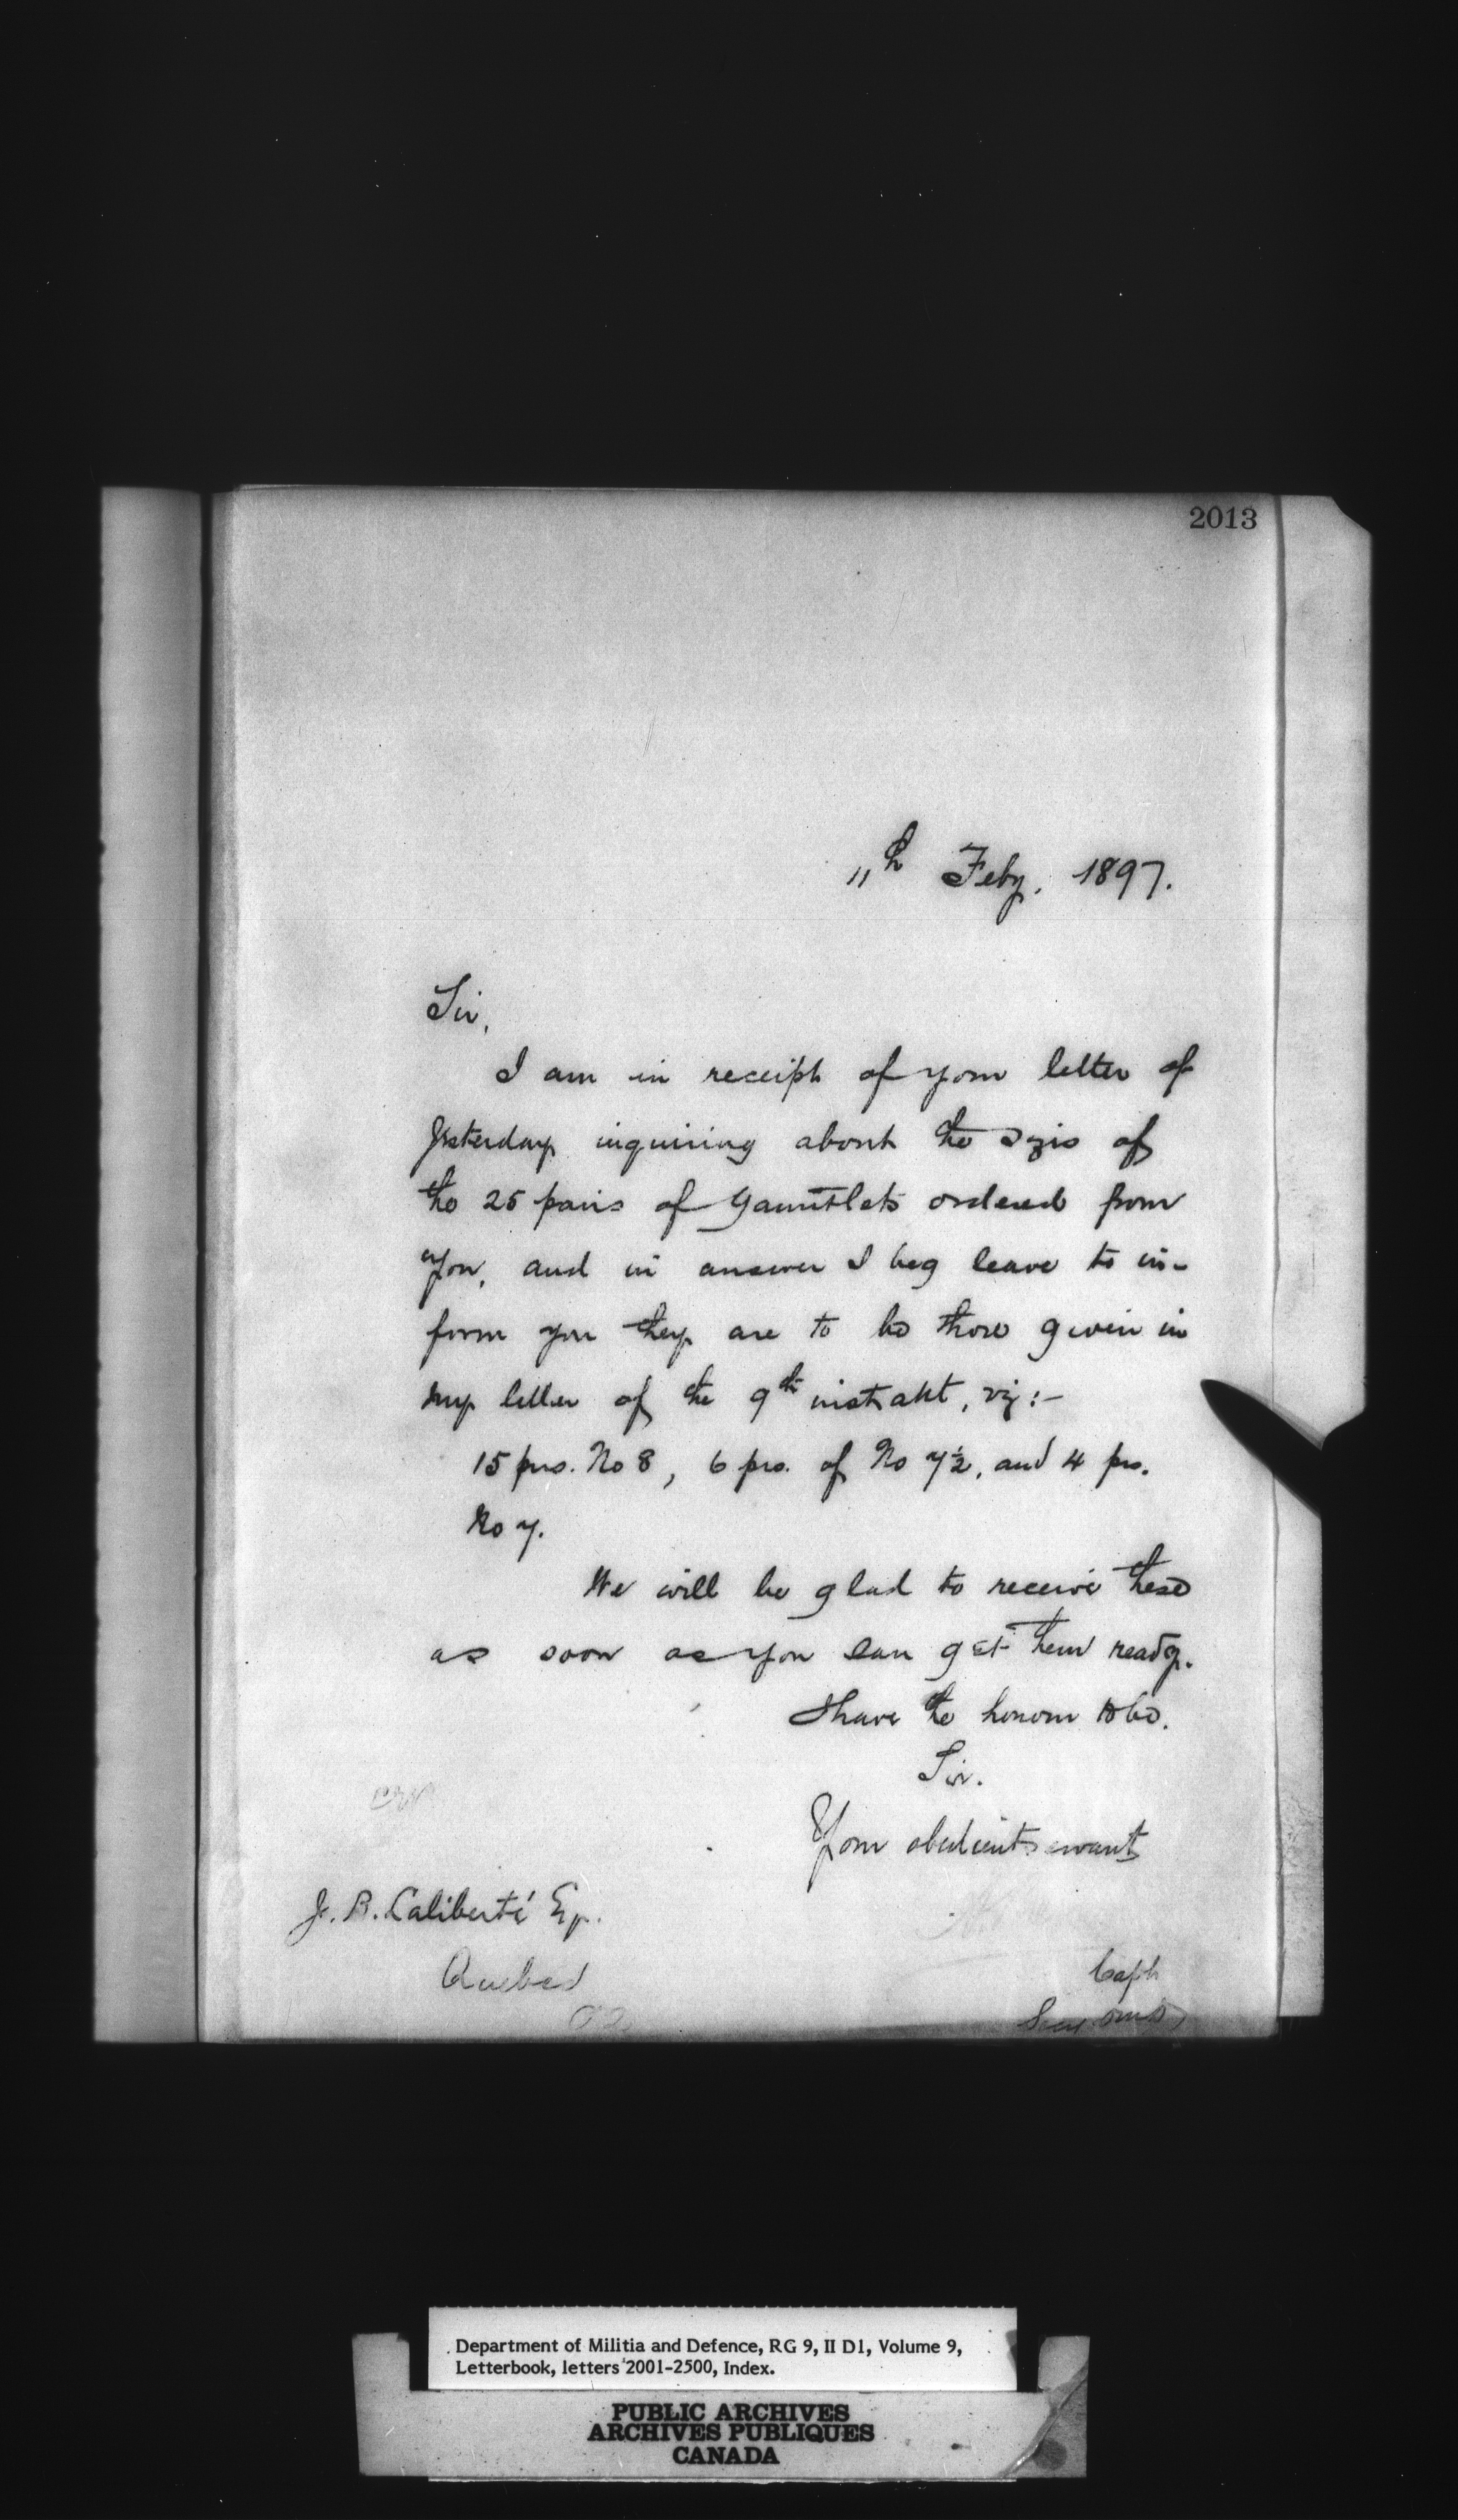 2013
11th Feby. 1897.
Sir,
I am in receipt of your letter of
yesterday inquiring about the size of
the 25 pairs of Gauntlets ordered from
you, and in answer I beg leave to in-
form you they are to be those given in
my letter of the 9th instant, viz:-
15 prs. No 8, 6 prs. of No 7½, and 4 prs.
No 7.
We will be glad to receive these
as soon as you can get them ready.
I have the honour to be.
Sir.
Your obedient servant
J. B. Laliberté Esq.
Quebec
Capt
Department of Militia and Defence, RG 9, II D1, Volume 9,
Letterbook, letters 2001-2500, Index.
PUBLIC ARCHIVES
ARCHIVES PUBLIQUES
CANADA